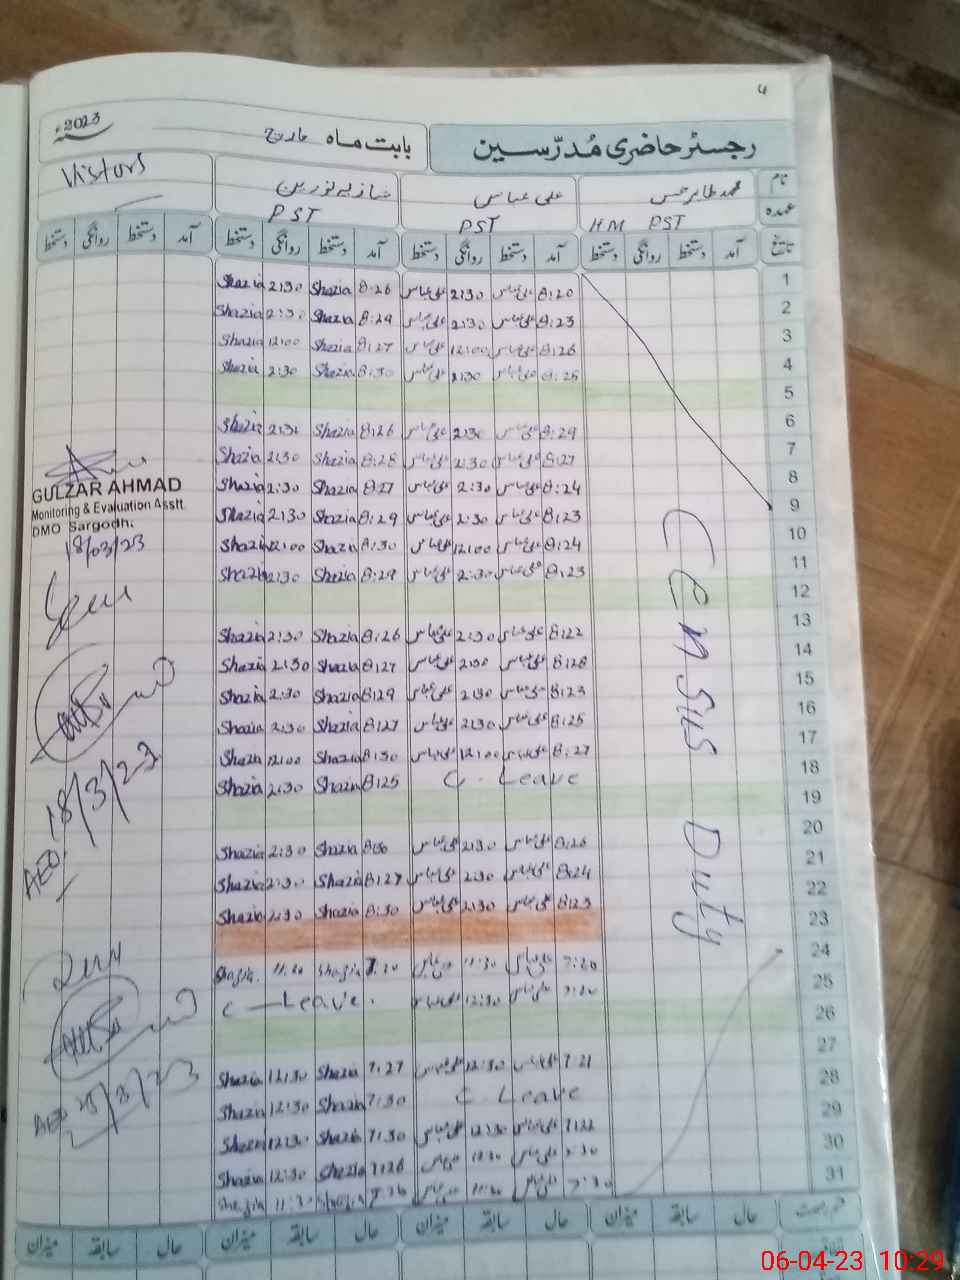 4
رجسٹر حاضری مُدرّسین بابت ماہ مارچ 2023ء
نام محمد طاہر حسن علی عباس شازیہ نورین Visitors
عہدہ HM PST PST PST
تاریخ آمد دستخط روانگی دستخط آمد دستخط روانگی دستخط آمد دستخط روانگی دستخط آمد دستخط روانگی دستخط
1 8:20 علی عباس 2:30 علی عباس 8:26 Shazia 2:30 Shazia
2 8:23 علی عباس 2:30 علی عباس 8:29 Shazia 2:30 Shazia
3 8:26 علی عباس 12:00 علی عباس 8:27 Shazia 12:00 Shazia
4 8:25 علی عباس 2:30 علی عباس 8:30 Shazia 2:30 Shazia
5
6 8:29 علی عباس 2:30 علی عباس 8:26 Shazia 2:30 Shazia
7 8:27 علی عباس 2:30 علی عباس 8:28 Shazia 2:30 Shazia
8 8:24 علی عباس 2:30 علی عباس 8:27 Shazia 2:30 Shazia
9 8:23 علی عباس 2:30 علی عباس 8:29 Shazia 2:30 Shazia
10 8:24 علی عباس 12:00 علی عباس 8:30 Shazia 12:00 Shazia
11 8:23 علی عباس 2:30 علی عباس 8:29 Shazia 2:30 Shazia
12
13 8:22 علی عباس 2:30 علی عباس 8:26 Shazia 2:30 Shazia
14 8:28 علی عباس 2:30 علی عباس 8:27 Shazia 2:30 Shazia
15 8:23 علی عباس 2:30 علی عباس 8:29 Shazia 2:30 Shazia
16 8:25 علی عباس 2:30 علی عباس 8:27 Shazia 2:30 Shazia
17 8:27 علی عباس 12:00 علی عباس 8:30 Shazia 12:00 Shazia
18 C. Leave 8:25 Shazia 2:30 Shazia
19
20 8:26 علی عباس 2:30 علی عباس Shazia 2:30 Shazia
21 8:24 علی عباس 2:30 علی عباس 8:27 Shazia 2:30 Shazia
22 8:23 علی عباس 2:30 علی عباس 8:30 Shazia 2:30 Shazia
23
24 7:20 علی عباس 11:30 علی عباس Shazia Shazia
25 علی عباس 12:30 علی عباس C - Leave.
26
27 7:21 علی عباس 12:30 علی عباس 7:27 Shazia 12:30 Shazia
28 C Leave 7:30 Shazia 12:30 Shazia
29 7:22 علی عباس 12:30 علی عباس 7:30 Shazia 12:30 Shazia
30 7:30 علی عباس علی عباس 7:26 Shazia 12:30 Shazia
31 7:30 علی عباس علی عباس Shazia 11:30 Shazia
Census Duty
GULZAR AHMAD
Monitoring & Evaluation Asstt.
DMO Sargodh.
18/03/23
AEO 18/3/23
AEO 25/3/23
حال سابقہ میزان حال سابقہ میزان حال سابقہ میزان حال سابقہ میزان
06-04-23 10:29